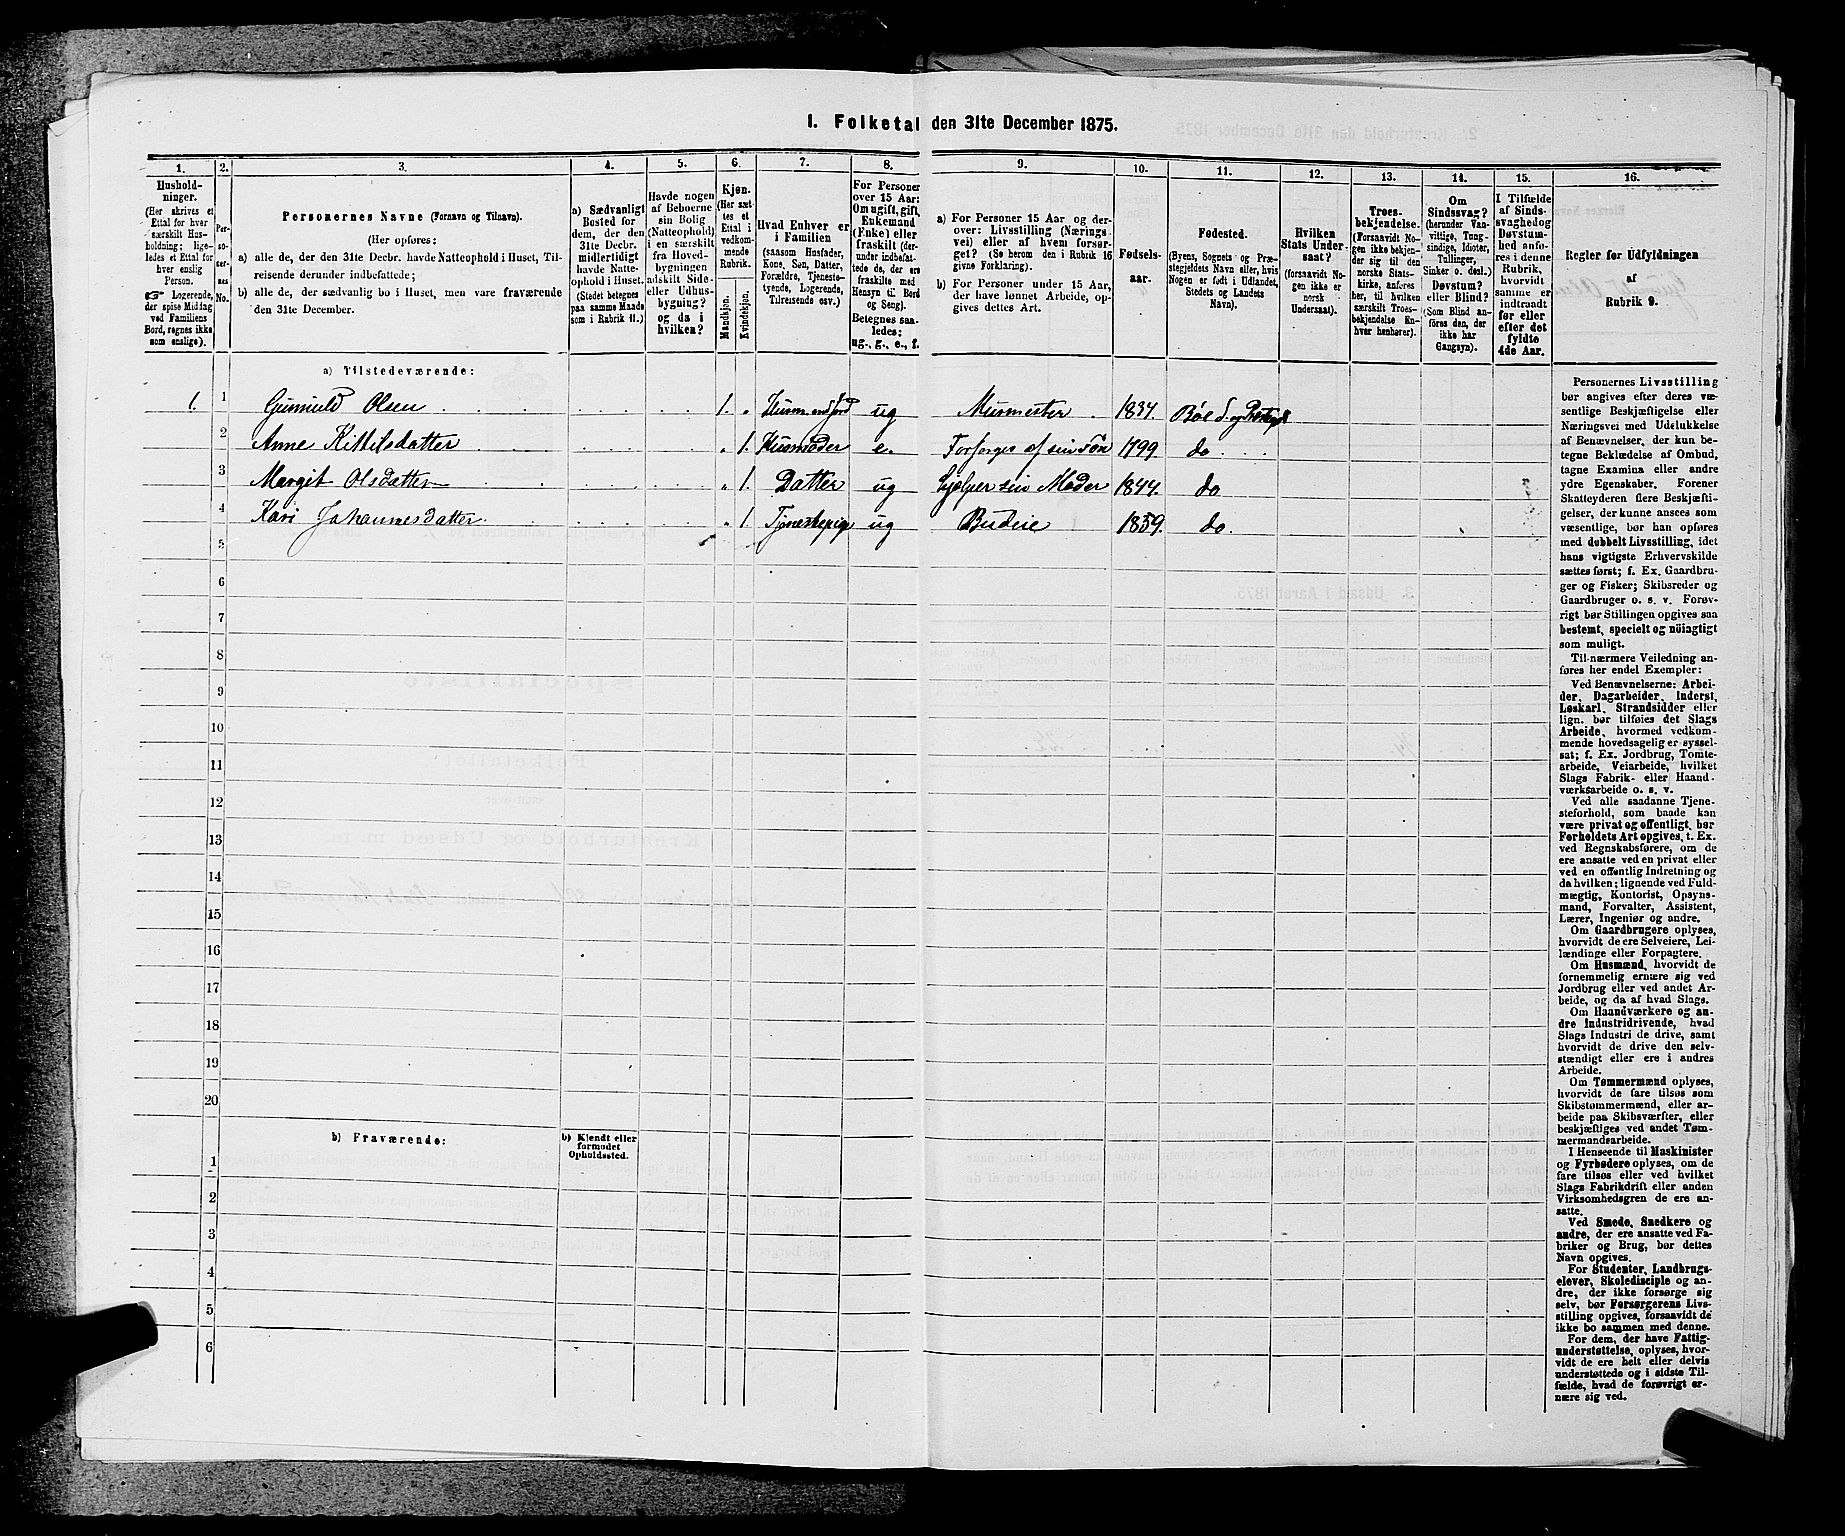 1. Folketal den 31te December 1875.
1. 2. 3. 4. 5. 6. 7. 8. 9. 10. 11. 12. 13. 14. 15. 16.
Hushold-
ninger.
(Her skrives et
Ettal for hver
særskilt Hus-
holdning; lige-
ledes et Ettal for
hver enslig
Person.
☞ Logerende,
der spise Middag
ved Familiens
Bord, regnes ikke
som enslige).
Per-
so-
ner-
nes
No.
Personernes Navne (Fornavn og Tilnavn).
(Her opføres:
a) alle de, der den 31te Decbr. havde Natteophold i Huset, Til-
reisende derunder indbefattede;
b) alle de, der sædvanlig bo i Huset, men vare fraværende
den 31te December.
a) Sædvanligt
Bosted for
dem, der den
31te Decbr.
midlertidigt
havde Natte-
ophold i Huset.
(Stedet betegnes
paa samme Maade
som i Rubrik 11.)
Havde nogen
af Beboerne
sin Bolig
(Natteophold)
i en særskilt
fra Hoved-
bygningen
adskilt Side-
eller Udhus-
bygning?
og da i
hvilken?
Kjøn.
(Her sæt-
tes et
Ettal i
vedkom-
mende
Rubrik.
Mandkjøn.
Kvindekjøn.
Hvad Enhver er
i Familien
(saasom Husfader,
Kone, Søn, Datter,
Forældre, Tjeneste-
tyende, Logerende,
Tilreisende osv.)
For Personer
over 15 Aar:
Om ugift, gift,
Enkemand
(Enke) eller
fraskilt (der-
under indbefat-
tede de, der ere
fraskilte med
Hensyn til Bord
og Seng).
Betegnes saa-
ledes:
ug., g., e., f.
a) For Personer 15 Aar og der-
over: Livsstilling (Nærings-
vei) eller af hvem forsør-
get? (Se herom den i Rubrik 16
givne Forklaring).
b) For Personer under 15 Aar,
der have lønnet Arbeide, op-
gives dettes Art.
Fødsels-
aar.
Fødested.
(Byens, Sognets og Præ-
stegjeldets Navn eller, hvis
Nogen er født i Udlandet,
Stedets og Landets
Navn).
Hvilken
Stats Under-
saat?
(forsaavidt No-
gen ikke er
norsk
Undersaat).
Troes-
bekjendelse.
(Forsaavidt No-
gen ikke bekjen-
der sig til den
norske Stats-
kirke, anføres
her, til hvilken
særskilt Troes-
bekjendelse En-
hver henhører).
Om
Sindssvag?
(herunder Van-
vittige, Tung-
sindige, Idioter,
Tullinger,
Sinker o. desl.)
Døvstum?
eller Blind?
(Som Blind an-
føres den, der
ikke har
Gangsyn).
I Tilfælde
af Sinds-
svaghed og
Døvstum-
hed anfø-
res i denne
Rubrik,
hvorvidt
samme er
indtraadt
før eller
efter det
fyldte
4de Aar.
Regler for Udfyldningen
af
Rubrik 9.
a) Tilstedeværende:
1. 1 Gunnuld Olsen 1. „ Husm. med Jord ug Murmester 1834. Bøe S. og Præstegj
2 Anne Kittilsdatter „ 1. Husmoder e. Forsørges af sin Søn 1799. do
3 Margit Olsdatter „ 1. Datter ug hjelper sin Moder 1844. do
4 Kari Johannesdatter „ 1. Tjenestepige ug Budeie 1859. do.
5
6
7
8
9
10
11
12
13
14
15
16
17
18
19
20
b) Fraværende:
b) Kjendt eller
formodet
Opholdssted.
1
2
3
4
5
6
Personernes Livsstilling
bør angives efter deres væ-
sentlige Beskjæftigelse eller
Næringsvei med Udelukkelse
af Benævnelser, der kun be-
tegne Beklædelse af Ombud,
tagne Examina eller andre
ydre Egenskaber. Forener
Skatteyderen flere Beskjæfti-
gelser, der kunne ansees som
væsentlige, bør han opføres
med dobbelt Livsstilling, idet
hans vigtigste Erhvervskilde
sættes først; f. Ex. Gaardbru-
ger og Fisker; Skibsreder og
Gaardbruger o. s. v. Forøv-
rigt bør Stillingen opgives saa
bestemt, specielt og nöiagtigt
som muligt.
Til nærmere Veiledning an-
føres her endel Exempler:
Ved Benævnelserne: Arbei-
der, Dagarbeider, Inderst,
Løskarl, Strandsidder eller
lign. bør tilføies det Slags
Arbeide, hvormed vedkom-
mende hovedsagelig er syssel-
sat; f. Ex. Jordbrug, Tomte-
arbeide, Veiarbeide, hvilket
Slags Fabrik- eller Haand-
værksarbeide o. s. v.
Ved alle saadanne Tjene-
steforhold, som baade kan
være privat og offentligt, bør
Forholdets Art opgives, t. Ex.
ved Regnskabsførere, om de
ere ansatte ved en privat eller
ved en offentlig Indretning og
da hvilken; lignende ved Fuld-
mægtig, Kontorist, Opsyns-
mand, Forvalter, Assistent,
Lærer, Ingeniør og andre.
Om Gaardbrugere oplyses,
hvorvidt de ere Selveiere, Lei-
lændinge eller Forpagtere.
Om Husmænd, hvorvidt de
fornemmelig ernære sig ved
Jordbrug eller ved andet Ar-
beide, og da af hvad Slags.
Om Haandværkere og an-
dre Industridrivende, hvad
Slags Industri de drive, samt
hvorvidt de drive den selv-
stændigt eller ere i andres
Arbeide.
Om Tømmermænd oplyses,
hvorvidt de fare tilsøs som
Skibstømmermænd, eller ar-
beide paa Skibsværfter, eller
beskjæftiges ved andet Tøm-
mermandsarbeide.
I Henseende til Maskinister
og Fyrbødere oplyses, om de
fare tilsøs eller ved hvilket
Slags Fabrikdrift eller anden
Virksomhedsgren de ere an-
satte.
Ved Smede, Snedkere og
andre, der ere ansatte ved Fa-
briker og Brug, bør dettes
Navn opgives.
For Studenter, Landbrugs-
elever, Skoledisciple og an-
dre, der ikke forsørge sig
selv, bør Forsørgerens Livs-
stilling opgives, forsaavidt de
ikke bo sammen med denne.
For dem, der have Fattig-
understøttelse, oplyses, hvor-
vidt de ere helt eller delvis
understøttede og i sidste Til-
fælde, hvad de forøvrigt er-
nære sig ved.